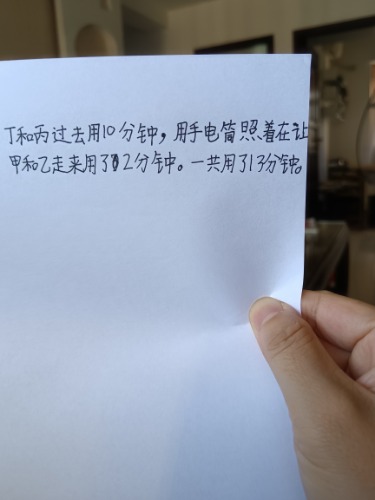 丁和丙过去用10分钟，用手电筒照着在让
甲和乙走来用了2分钟。一共用了13分钟。